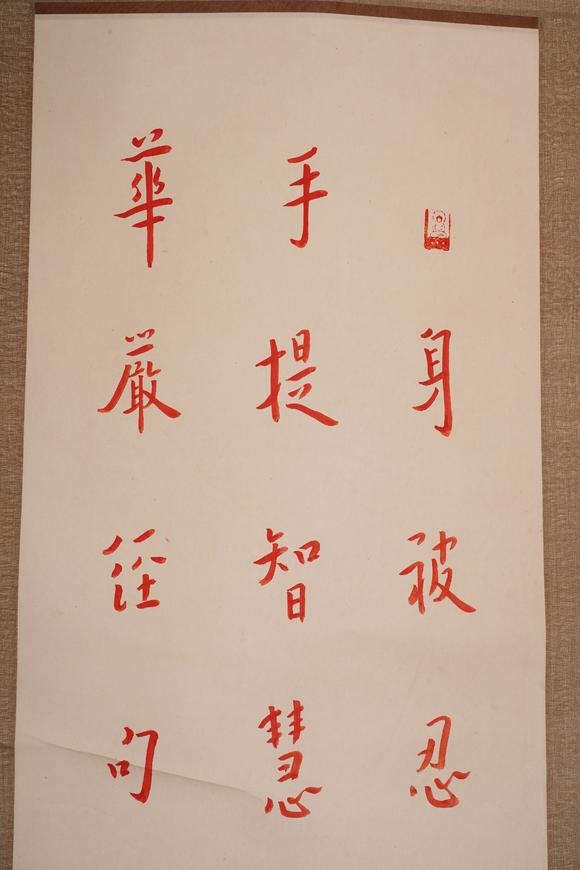 身被忍
手提智慧
華嚴經句